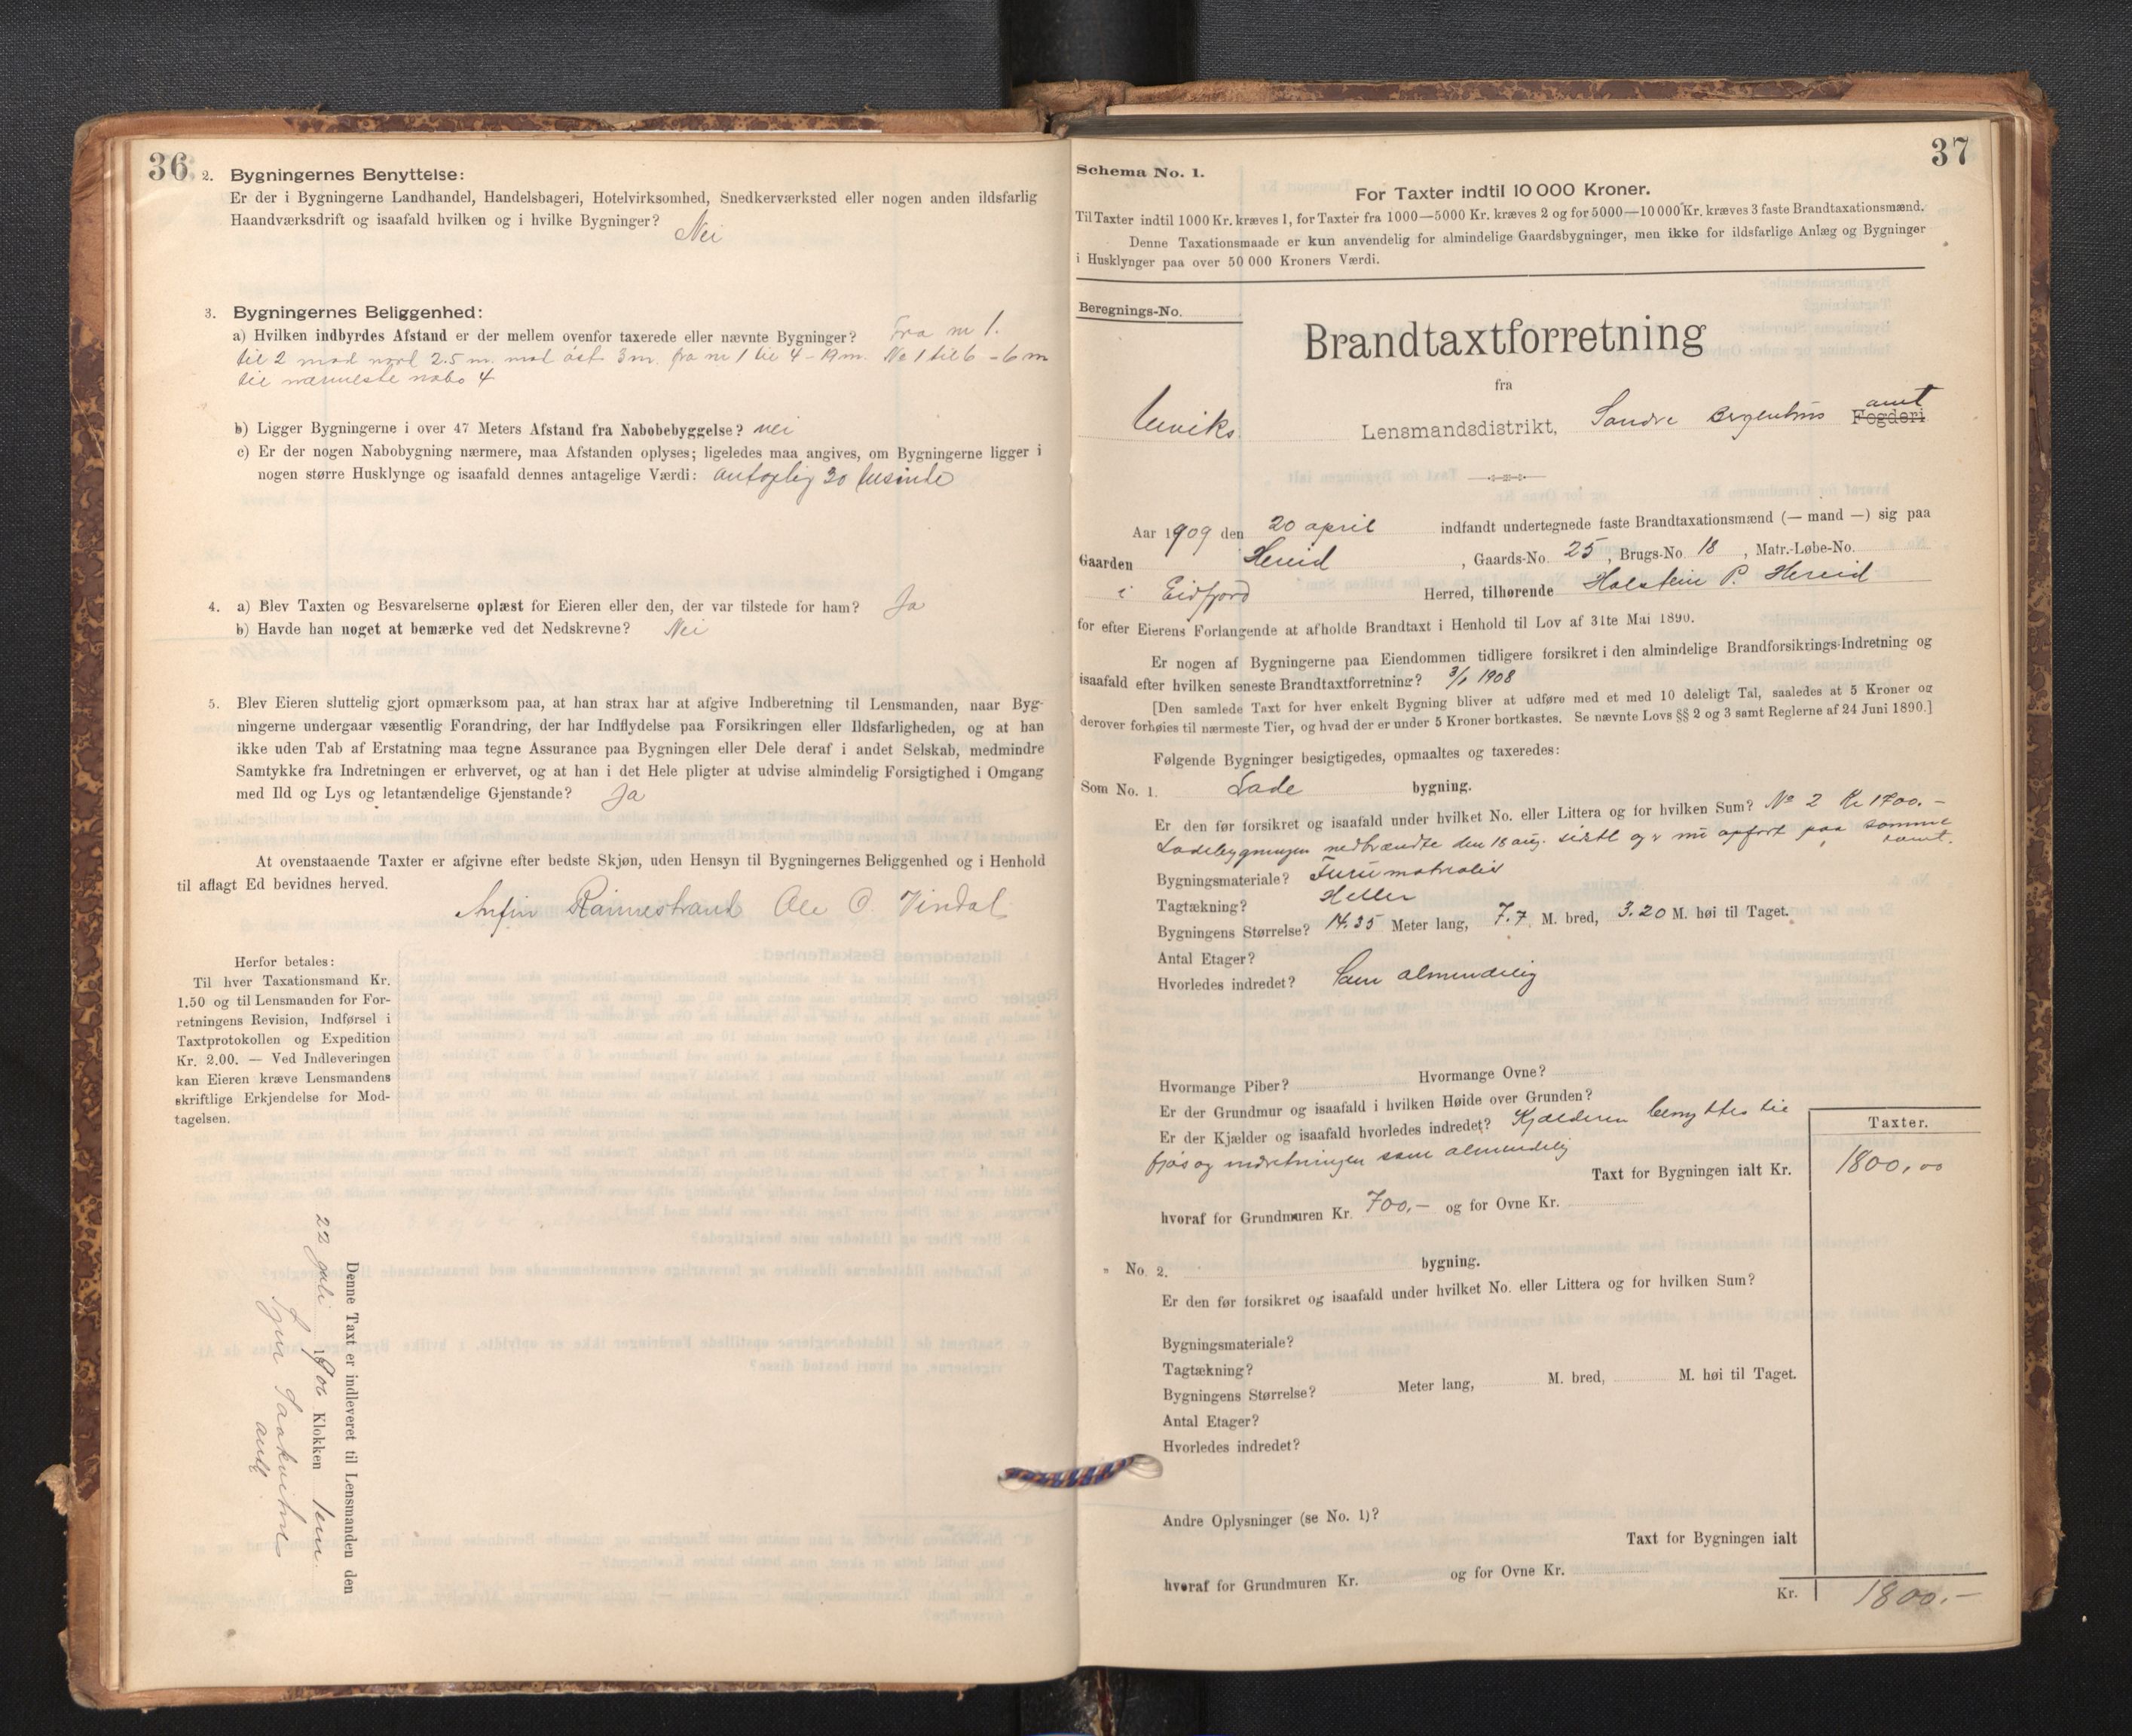 36
2. Bygningernes Benyttelse:
Er der i Bygningerne Landhandel, Handelsbageri, Hotelvirksomhed, Snedkerværksted eller nogen anden ildsfarlig
Haandværksdrift og isaafald hvilken og i hvilke Bygninger? Nei
3. Bygningernes Beliggenhed:
a) Hvilken indbyrdes Afstand er der mellem ovenfor taxerede eller nævnte Bygninger? Fra nr 1.
til 2 mod nord 2.5 m. mod øst 3 m. fra nr 1 til 4 - 19 m. No 1 til 6 - 6 m
til nærmeste nabo 4
b) Ligger Bygningerne i over 47 Meters Afstand fra Nabobebyggelse? nei
c) Er der nogen Nabobygning nærmere, maa Afstanden oplyses; ligeledes maa angives, om Bygningerne ligger i
nogen større Husklynge og isaafald dennes antagelige Værdi: antagelig 30 tusinde
4. a) Blev Taxten og Besvarelserne oplæst for Eieren eller den, der var tilstede for ham? Ja
b) Havde han noget at bemærke ved det Nedskrevne? Nei
5. Blev Eieren sluttelig gjort opmærksom paa, at han strax har at afgive Indberetning til Lensmanden, naar Byg-
ningerne undergaar væsentlig Forandring, der har Indflydelse paa Forsikringen eller Ildsfarligheden, og at han
ikke uden Tab af Erstatning maa tegne Assurance paa Bygningen eller Dele deraf i andet Selskab, medmindre
Samtykke fra Indretningen er erhvervet, og at han i det Hele pligter at udvise almindelig Forsigtighed i Omgang
med Ild og Lys og letantændelige Gjenstande? Ja
At ovenstaaende Taxter er afgivne efter bedste Skjøn, uden Hensyn til Bygningernes Beliggenhed og i Henhold
til aflagt Ed bevidnes herved.
Anfin Rannestrand Ole O. Vindal
Herfor betales:
Til hver Taxationsmand Kr.
1.50 og til Lensmanden for For-
retningens Revision, Indførsel i
Taxtprotokollen og Expedition
Kr. 2.00. — Ved Indleveringen
kan Eieren kræve Lensmandens
skriftlige Erkjendelse for Mod-
tagelsen.
Denne Taxt er indleveret til Lensmanden den
22 juli 1906 Klokken
37
Schema No. 1.
For Taxter indtil 10 000 Kroner.
Til Taxter indtil 1000 Kr. kræves 1, for Taxter fra 1000—5000 Kr. kræves 2 og for 5000—10 000 Kr. kræves 3 faste Brandtaxationsmænd.
Denne Taxationsmaade er kun anvendelig for almindelige Gaardsbygninger, men ikke for ildsfarlige Anlæg og Bygninger
i Husklynger paa over 50 000 Kroners Værdi.
Beregnings-No.
Brandtaxtforretning
fra
Ulviks Lensmandsdistrikt, Søndre Bergenhus amt Fogderi
Aar 1909 den 20 april indfandt undertegnede faste Brandtaxationsmænd (— mand —) sig paa
Gaarden Hereid, Gaards-No. 25, Brugs-No 18, Matr.-Løbe-No.
i Eidfjord Herred, tilhørende Halstein P. Hereid
for efter Eierens Forlangende at afholde Brandtaxt i Henhold til Lov af 31te Mai 1890.
Er nogen af Bygningerne paa Eiendommen tidligere forsikret i den almindelige Brandforsikrings-Indretning og
isaafald efter hvilken seneste Brandtaxtforretning? 3/1 1908
[Den samlede Taxt for hver enkelt Bygning bliver at udføre med et med 10 deleligt Tal, saaledes at 5 Kroner og
derover forhøies til nærmeste Tier, og hvad der er under 5 Kroner bortkastes. Se nævnte Lovs §§ 2 og 3 samt Reglerne af 24 Juni 1890.]
Følgende Bygninger besigtigedes, opmaaltes og taxeredes:
Som No. 1. Lade bygning.
Er den før forsikret og isaafald under hvilket No. eller Littera og for hvilken Sum? No 2 Kr 1700.-
Ladebygningen nedbrændte den 18 aug. sidstl og er nu opført paa samme
tomt.
Bygningsmateriale? Furumaterialer
Tagtækning? Heller
Bygningens Størrelse? 14.35 Meter lang, 7.7 M. bred, 3.20 M. høi til Taget.
Antal Etager?
Hvorledes indredet? Som almindelig
Hvormange Piber? Hvormange Ovne?
Er der Grundmur og isaafald i hvilken Høide over Grunden?
Er der Kjælder og isaafald hvorledes indredet? Kjælderen benyttes til
fjøs og indretningen som almindelig
Taxter.
Taxt for Bygningen ialt Kr. 1800,00
hvoraf for Grundmuren Kr. 700,- og for Ovne Kr.
" No. 2. bygning.
Er den før forsikret og isaafald under hvilket No. eller Littera og for hvilken Sum?
Bygningsmateriale?
Tagtækning?
Bygningens Størrelse? Meter lang, M. bred, M. høi til Taget.
Antal Etager?
Hvorledes indredet?
Andre Oplysninger (se No. 1)?
Taxt for Bygningen ialt
hvoraf for Grundmuren Kr. og for Ovne Kr.
Kr. 1800.-